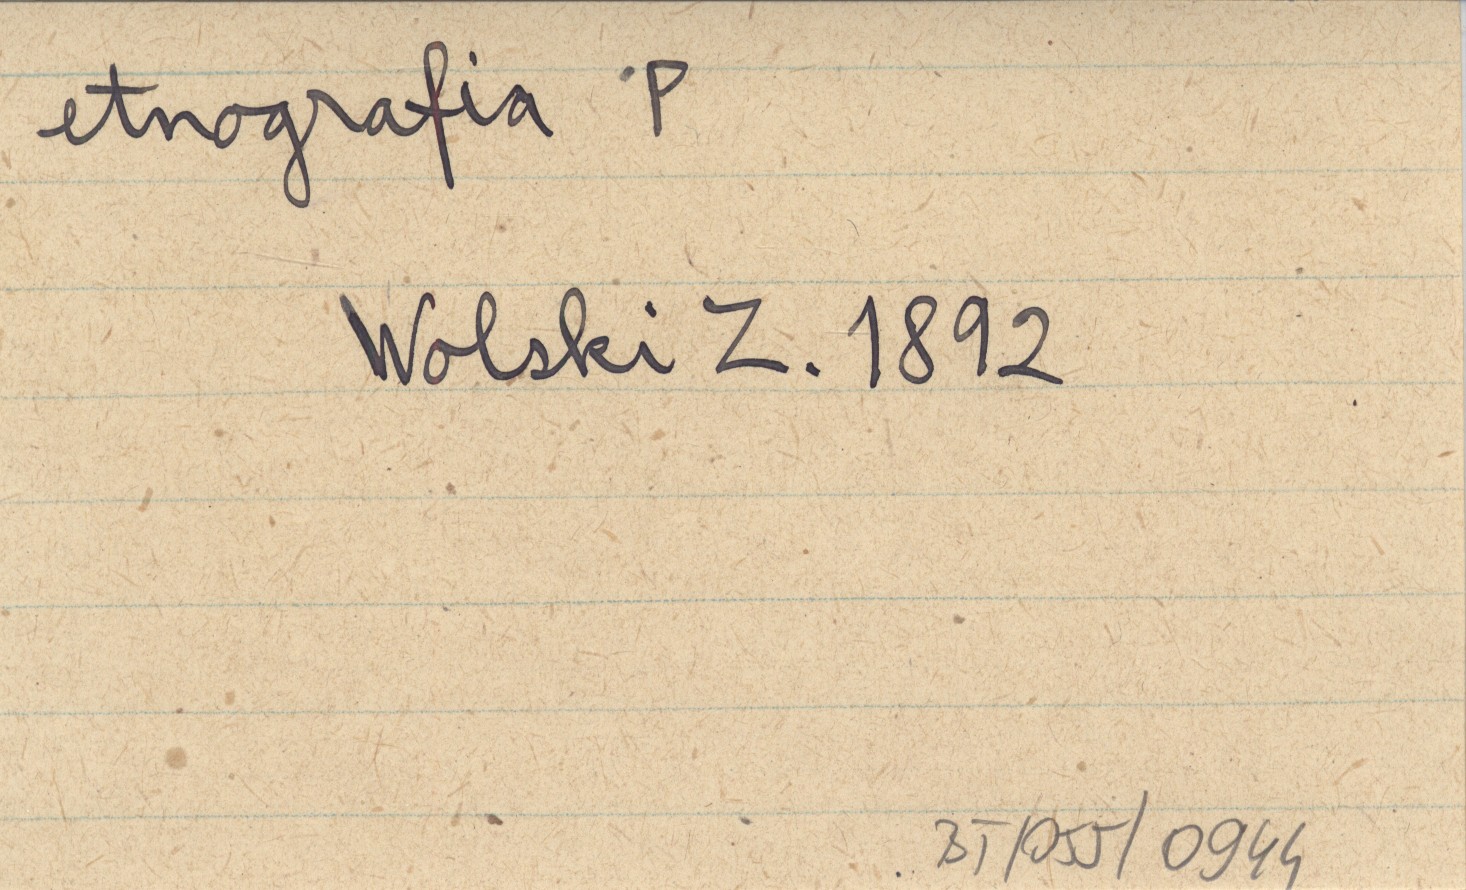 etnografia P
Wolski Z. 1892
BT/055/0944